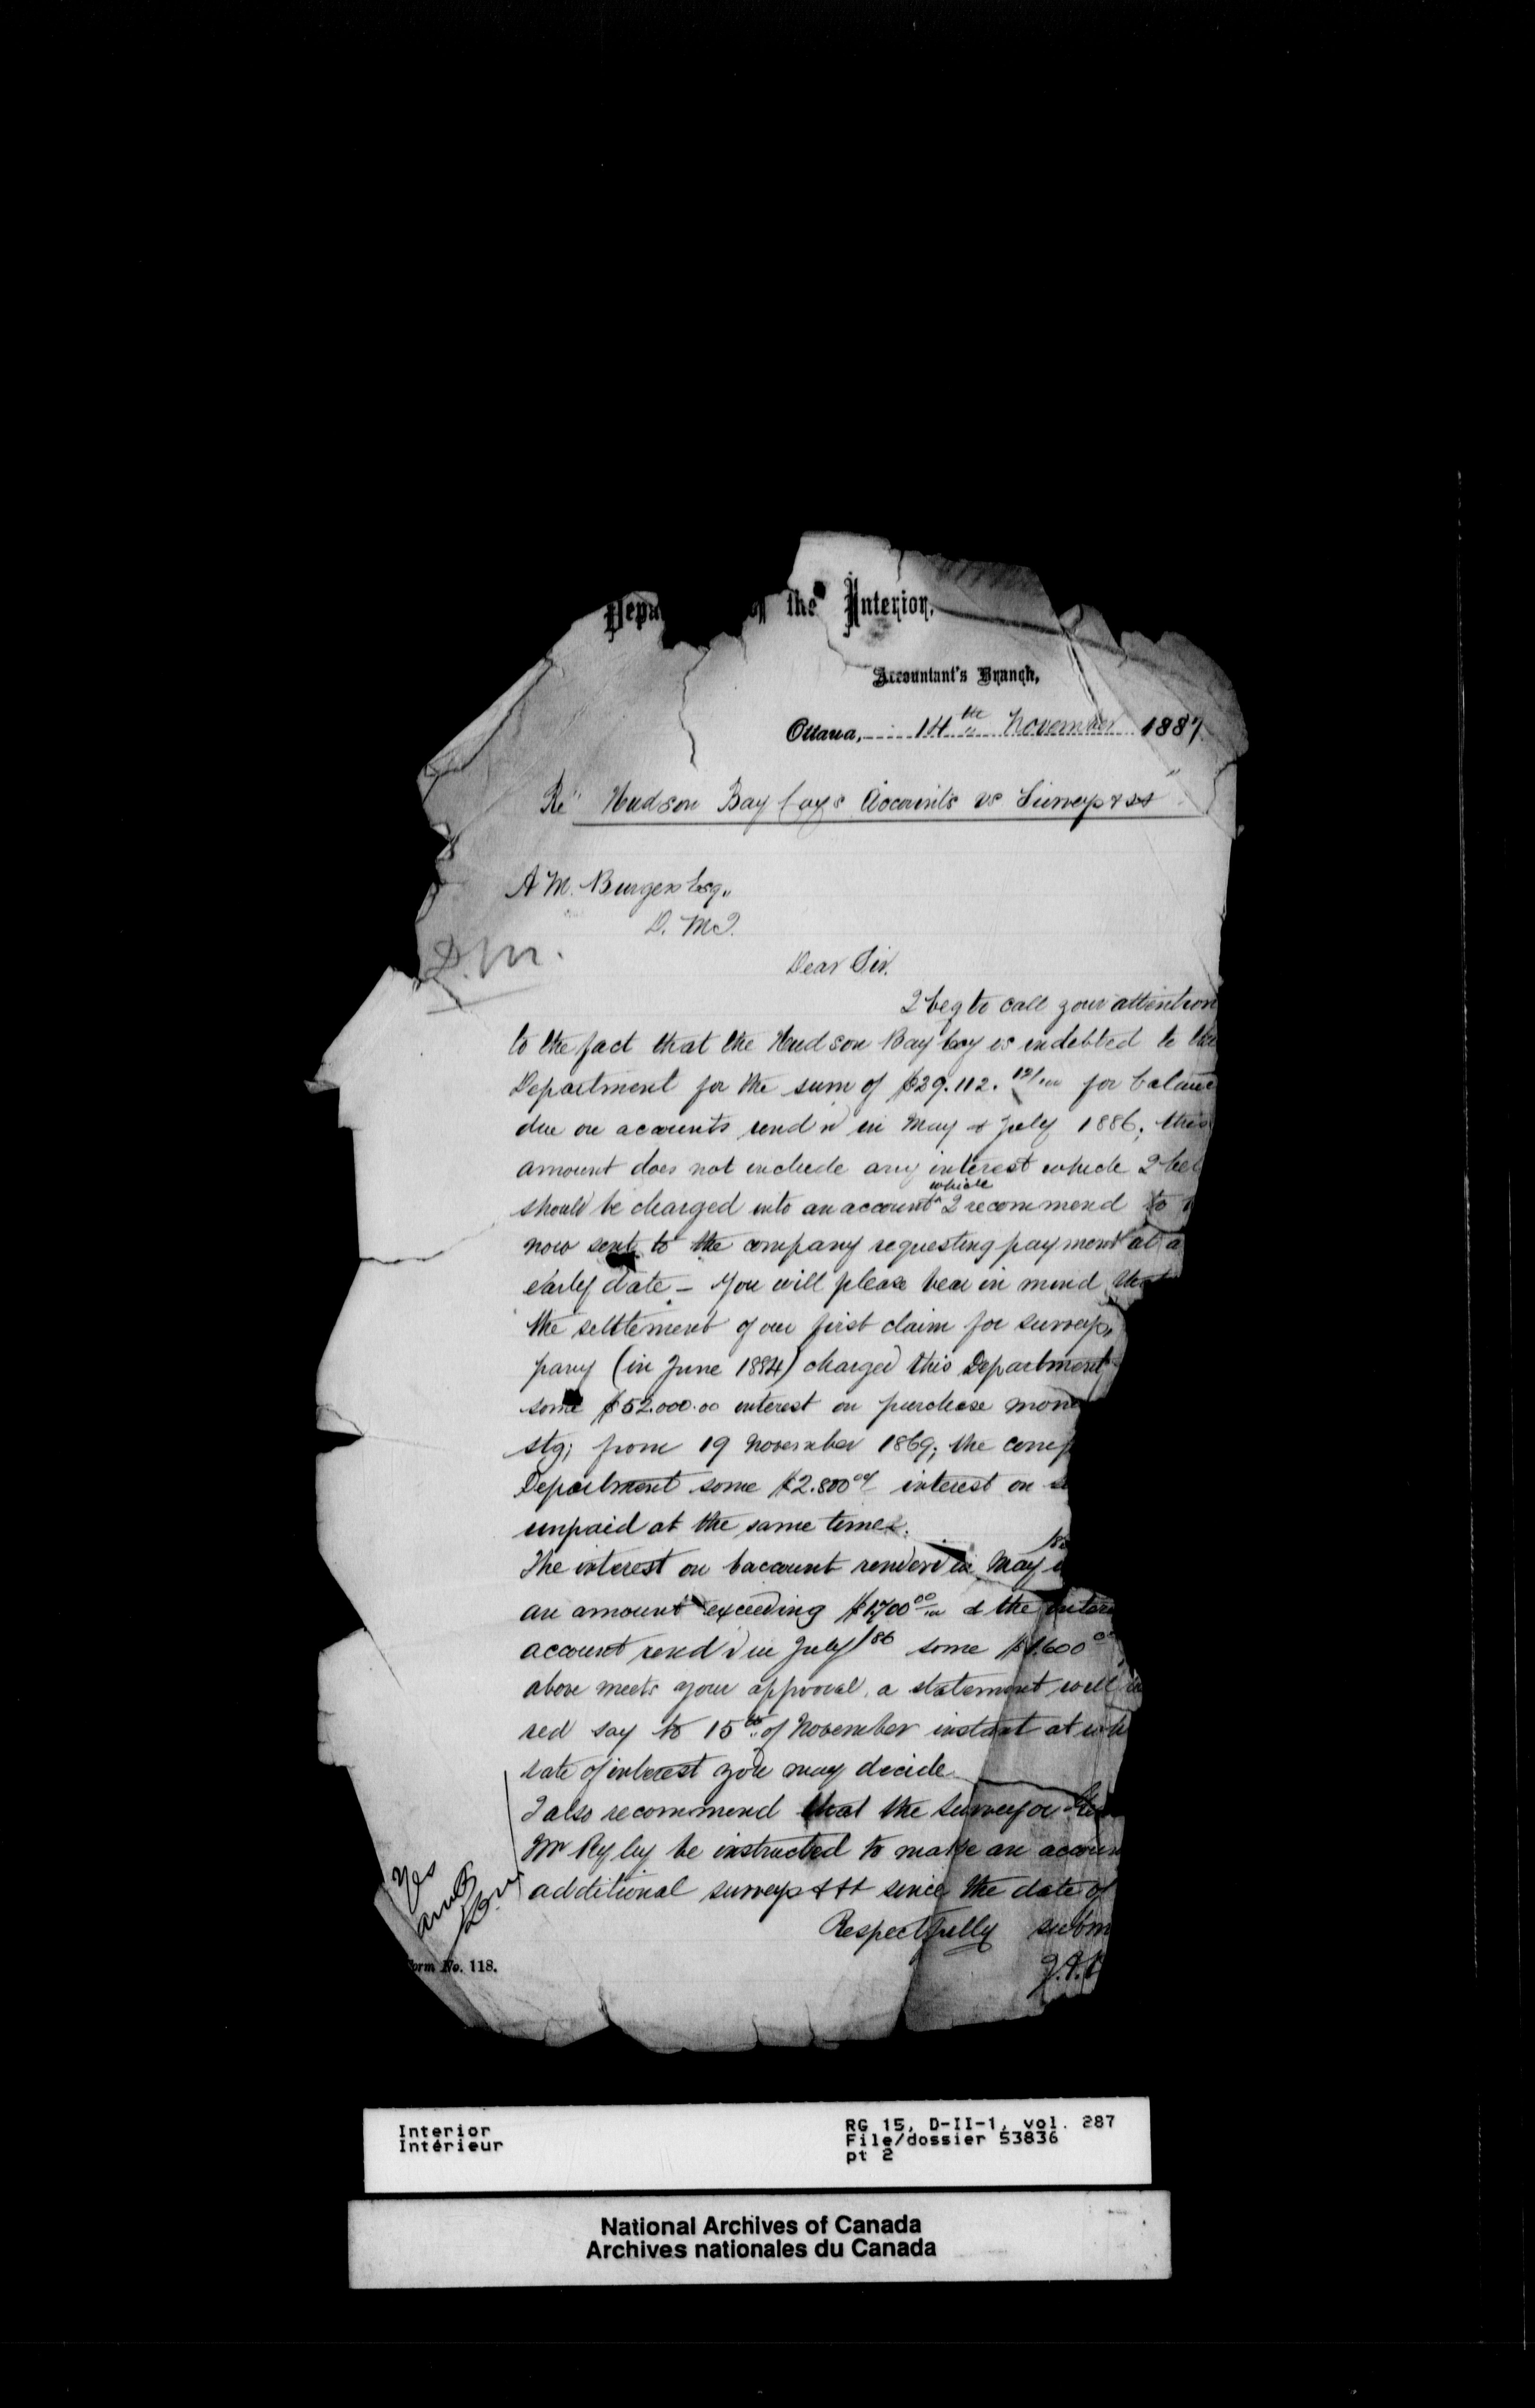 Depa of the Interior.
Accountant's Branch,
Ottawa, 14th November 1887
Re" Hudson Bay Coys Accounts vs Surveys &&"
A M. Burgess Esq.,
D. M. I.
D.M.
Dear Sir.
I beg to call your attention
to the fact that the Hudson Bay Coy is indebted to the
Department for the sum of $29.112. for balance
due on accounts rend'd in May & July 1886; this
amount does not include any interest which I bel
should be charged into an account which I recommend to
now sent to the company requesting payment at a
early date - You will please bear in mind that
the settlement of our first claim for surveys,
pany (in June 1884) charged this Department
some $52.000.00 interest on purchase mone
stg; from 19 November 1869; the comp
Department some $2.800 interest on
unpaid at the same time.
The interest on account render'd in May
an amount exceeding $1700 00 & the inter
account rend'd in July/86 some $1.600
above meets your approval, a statement will
red say to 15th of November instant at wh
rate of interest you may decide
I also recommend that the Surveyor Ge
Mr Ryley be instructed to make an accoun
additional surveys &&& since the date of
Respectfully subm
Yes
AMB
Form No. 118.
Interior
Intérieur
RG 15, D-II-1, vol. 287
File/dossier 53836
pt 2
National Archives of Canada
Archives nationales du Canada